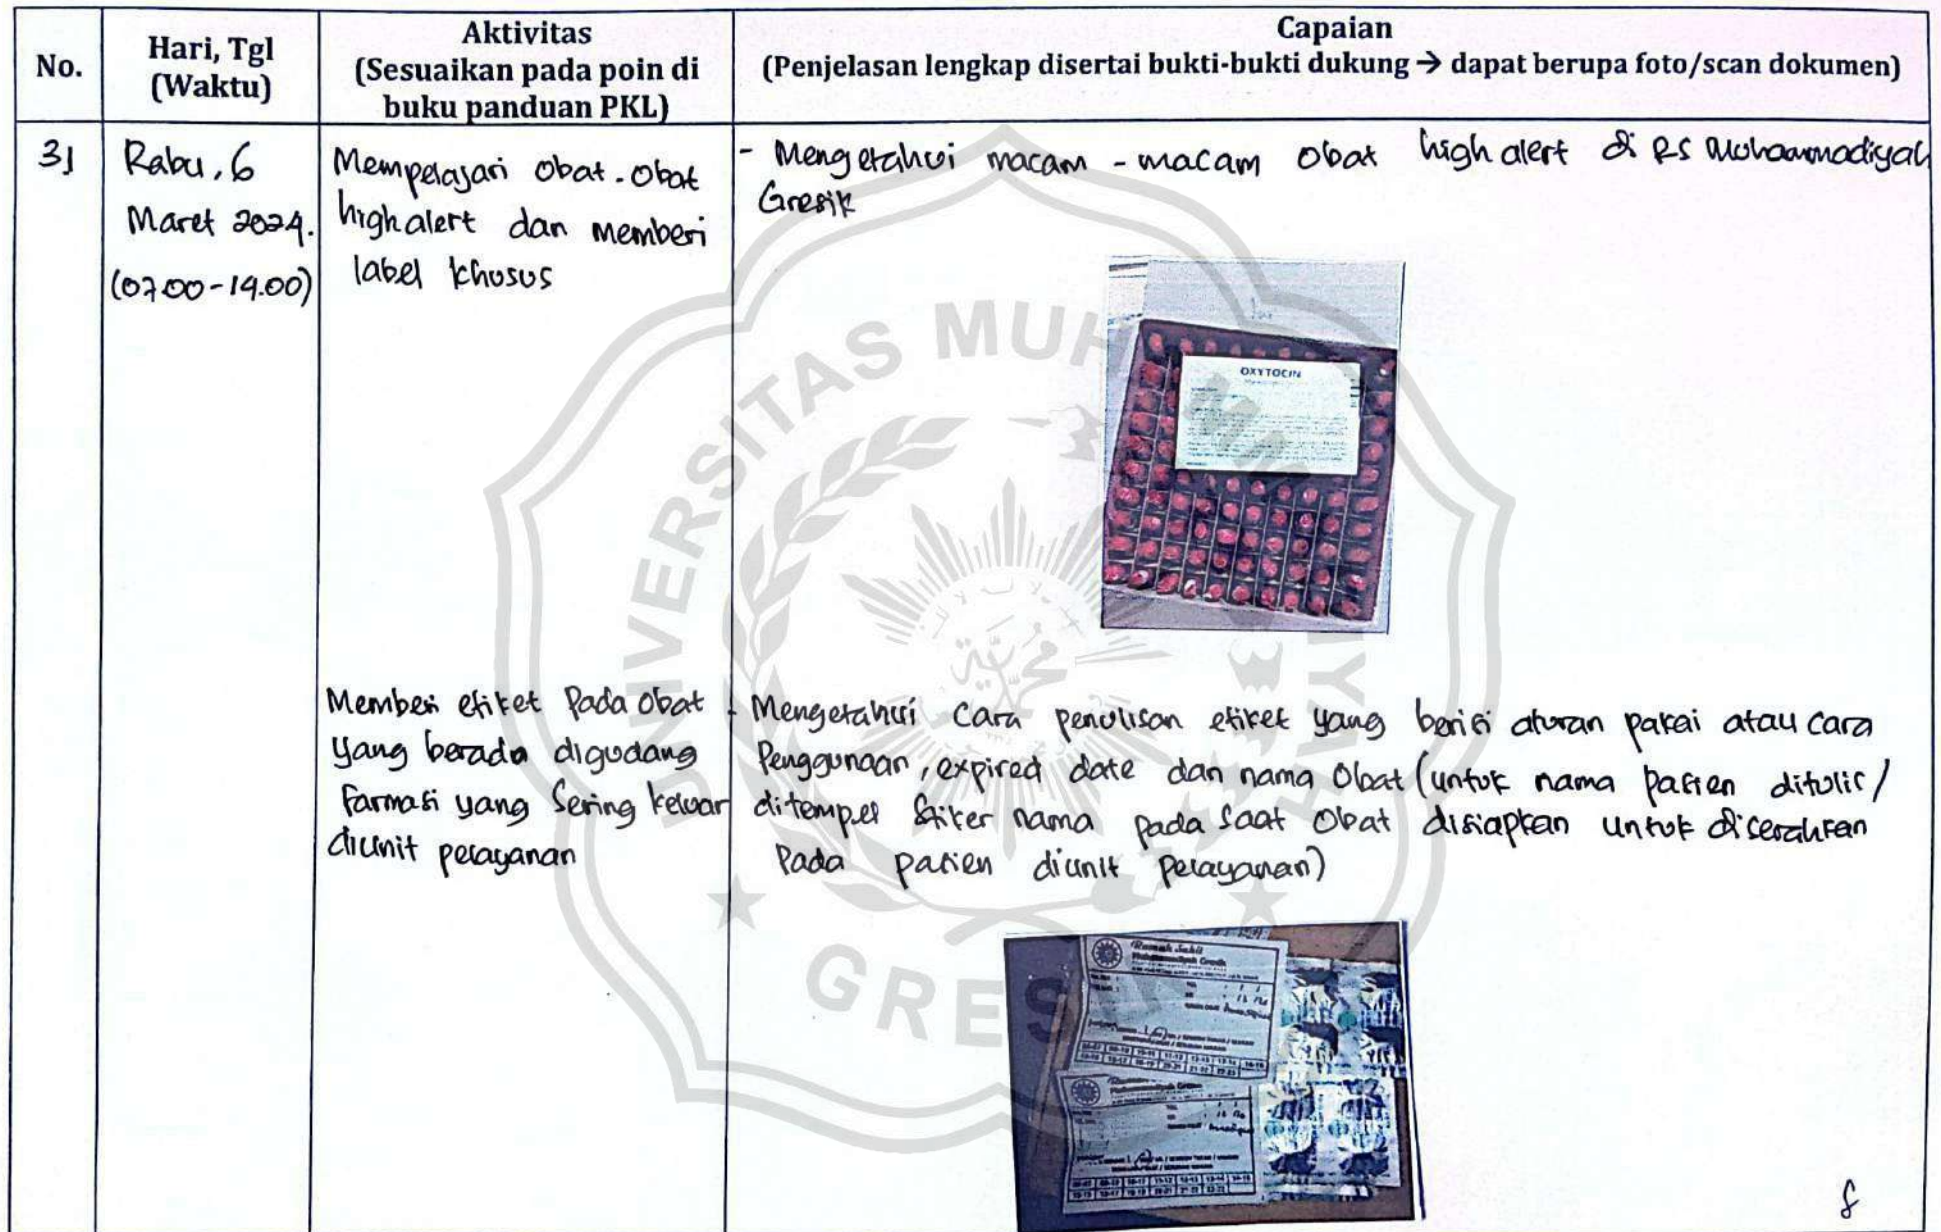 No.
Hari, Tgl
(Waktu)
Aktivitas
(Sesuaikan pada poin di
buku panduan PKL)
Capaian
(Penjelasan lengkap disertai bukti-bukti dukung → dapat berupa foto/scan dokumen)
3)
Rabu, 6
Maret 2024.
(07.00-14.00)
Mempelajari Obat-Obat
high alert dan memberi
label khusus
- Mengetahui macam-macam obat high alert di RS Muhammadiyah
Gresik
OXYTOCIN
Memberi etiket Pada Obat
yang berada digudang
Farmasi yang Sering keluar
diunit pelayanan
- Mengetahui Cara penulisan etiket yang berisi aturan pakai atau cara
Penggunaan, expired date dan nama Obat (untuk nama pasien ditulis/
ditempel Stiker nama pada saat Obat disiapkan untuk diserahkan
Pada pasien diunit Pelayanan)
Rumah Sakit
Muhammadiyah Gresik
UNIVERSITAS MUHAMMADIYAH
GRESIK